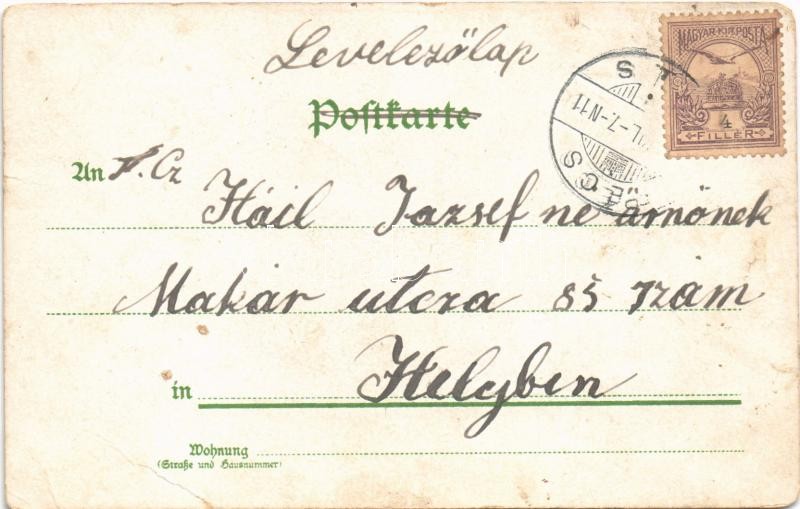 Levelezőlap
Postkarte
MAGYAR KIR. POSTA
4
FILLÉR
An T. Cz
Háil Jazsef ne árnőnek
Makár utcza 85 szám
in Helyben
Wohnung
(Straße und Hausnummer)